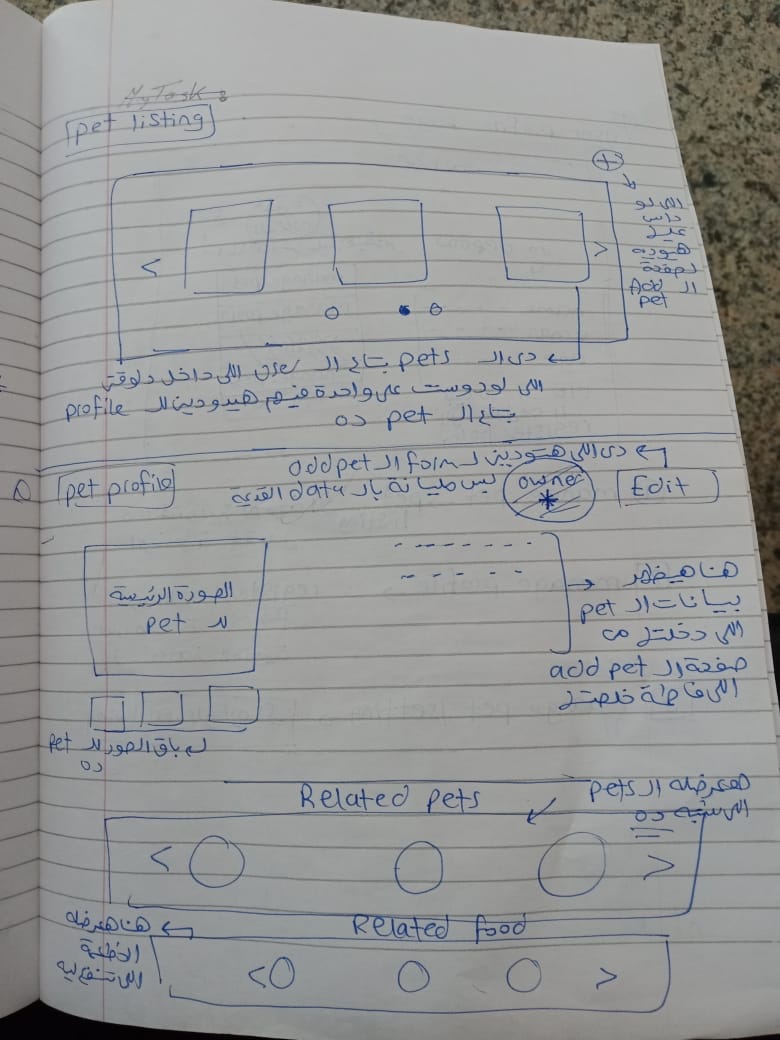 My Task :
pet listing
+
اللي لو
داس
عليه
هتوديه
لصفحة
ال Add
pet
< >
دى ال pets بتاع ال user اللى داخل دلوقتى
اللى لو دوست على واحدة فيهم هيودينى لل profile
بتاع ال pet ده
pet profile
دى اللى هتودينى لـ form ال add pet
بس مليانة بال data القديمة
owner
*
Edit
الصورة الرئيسية
لل pet
هنا هيظهر
بيانات ال pet
اللى دخلت من
صفحة ال add pet
اللى فاطمة خلصتها
باقى الصور لل pet
ده
Related pets
هعرضله ال pets
اللى شبه ده
< >
Related food
هنا هعرضله
الأطعمة
اللى تنفع ليه
< >